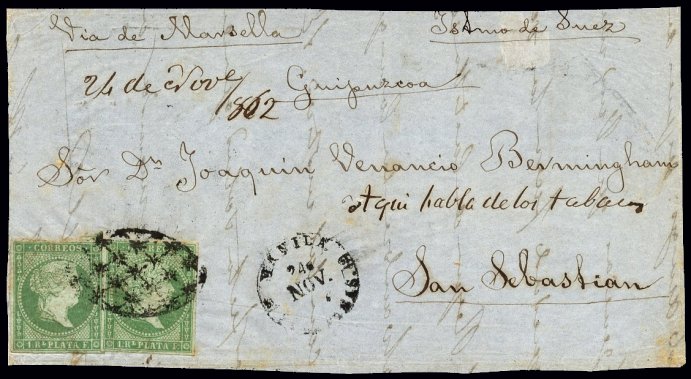 Via de Marsella Istmo de Suez
24 de Nove/862 Guipuzcoa
Sor Dn Joaquin Venancio Bermingham
Aqui habla de los tabacos
San Sebastian
CORREOS
1. Rl PLATA F.
1. Rl PLATA F.
MANILA
24
NOV.